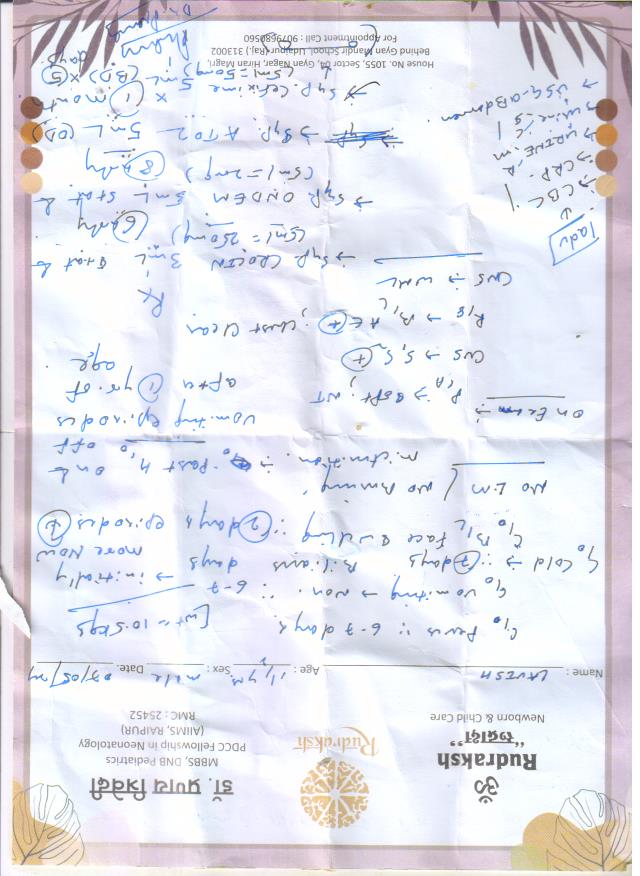 ॐ
Rudraksh
"रुद्राक्ष"
Newborn & Child Care
Rudraksh
डॉ. प्रणय त्रिवेदी
MBBS, DNB Pediatrics
PDCC Fellowship in Neonatology
(AIIMS, RAIPUR)
RMC : 25452
Name : LAVISH Age : 1½ yr Sex : male Date.
c/o Fever :: 6-7 days [wt = 10.5kgs
c/o vomiting → Non Bilious :: 6-7 days → initially more now
c/o Cold → :: 7 days
c/o B/L Face Swelling :: 2 days episodes
No L.M / No
micturition. → Past H/o on &
off
vomiting episodes
after 1 yr of
age
on Exam →
P/A → soft, NT
CVS → S1 S2 +
R/S → B/L AE + ; chest clear
CNS → WNL
Rx
→ Syp CROCIN 3mL stat &
(5ml = 250mg) 6 hrly
→ Syp ONDEM 3mL stat &
(5ml = 2mg) 8 hrly
→ Syp ATOZ 5mL (OD)
x 1 month
→ Syp Cefixime 5mL (BD) x 5 days
(5ml = 50mg)
Iadv
→ CBC
→ CRP
→ URINE R/M
→ urine c/s
→ USG-abdomen
House No. 1055, Sector 04, Gyan Nagar, Hiran Magri,
Behind Gyan Mandir School, Udaipur, (Raj.) 313002
For Appointment Call : 9079680560